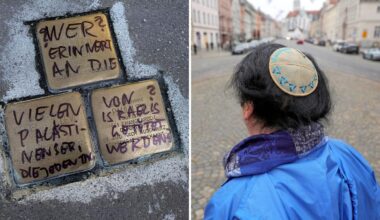 WER?
ERINNERT
AN DIE
VIELEN
PALÄSTI-
NENSER,
DIE JEDEN TAG
VON?
ISRAELIS
GETÖTET
WERDEN?